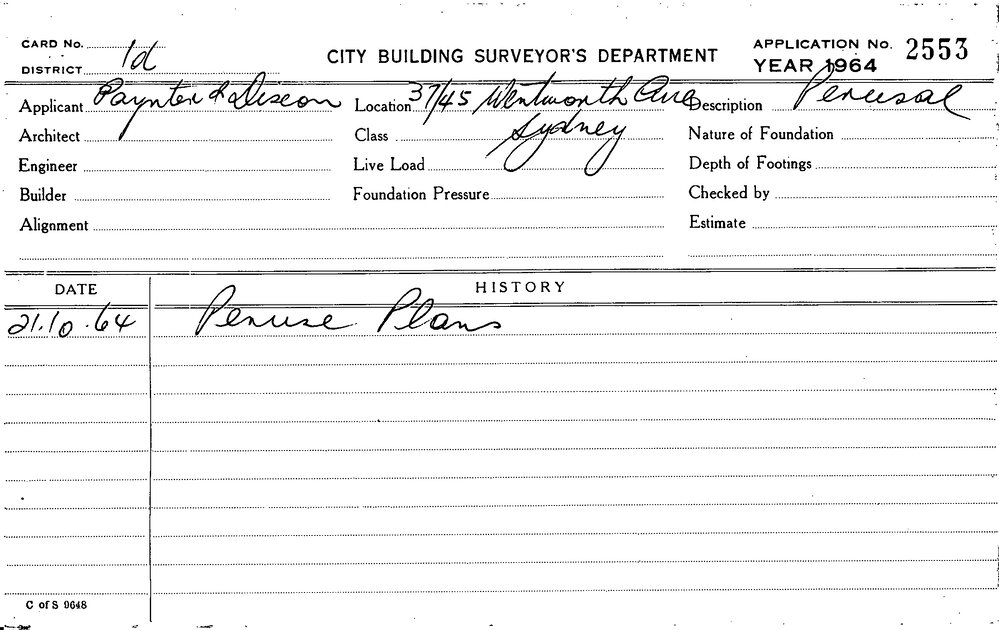 CARD No.
DISTRICT 1d
CITY BUILDING SURVEYOR'S DEPARTMENT
APPLICATION No. 2553
YEAR 1964
Applicant Paynter & Dixon Location 37/45 Wentworth Ave Description Perusal
Architect Class Sydney Nature of Foundation
Engineer Live Load Depth of Footings
Builder Foundation Pressure Checked by
Alignment Estimate
DATE HISTORY
21.10.64 Peruse Plans
C of S 9648